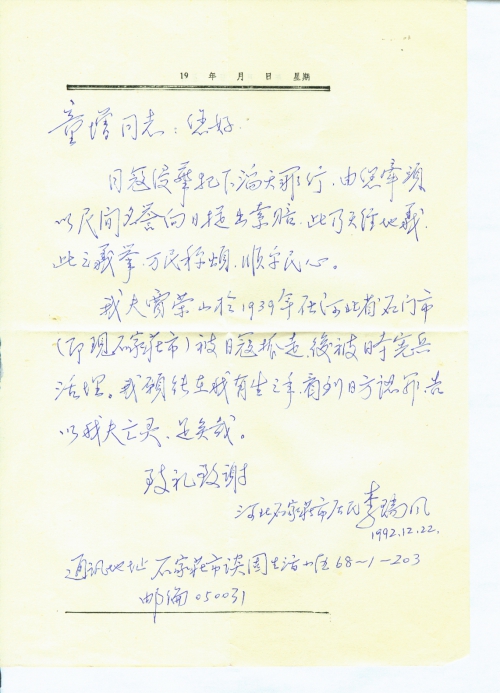 19 年 月 日 星期
童增同志：您好.
日寇侵華犯下滔天罪行，由您牽頭
以民间名誉向日提出索赔，此乃天经地義，
此之義拳，万民称頌，順乎民心。
我夫賈荣山於1939年在河北省石门市
(即现石家莊市)被日寇抓走，後被日寇兵
活埋。我願能在我有生之年，看到日方認罪，告
以我夫亡灵，足矣哉。
致礼致谢
河北石家莊市居民李瑞凤
1992.12.22.
通讯地址 石家莊市談固生活小区68-1-203
邮编050031